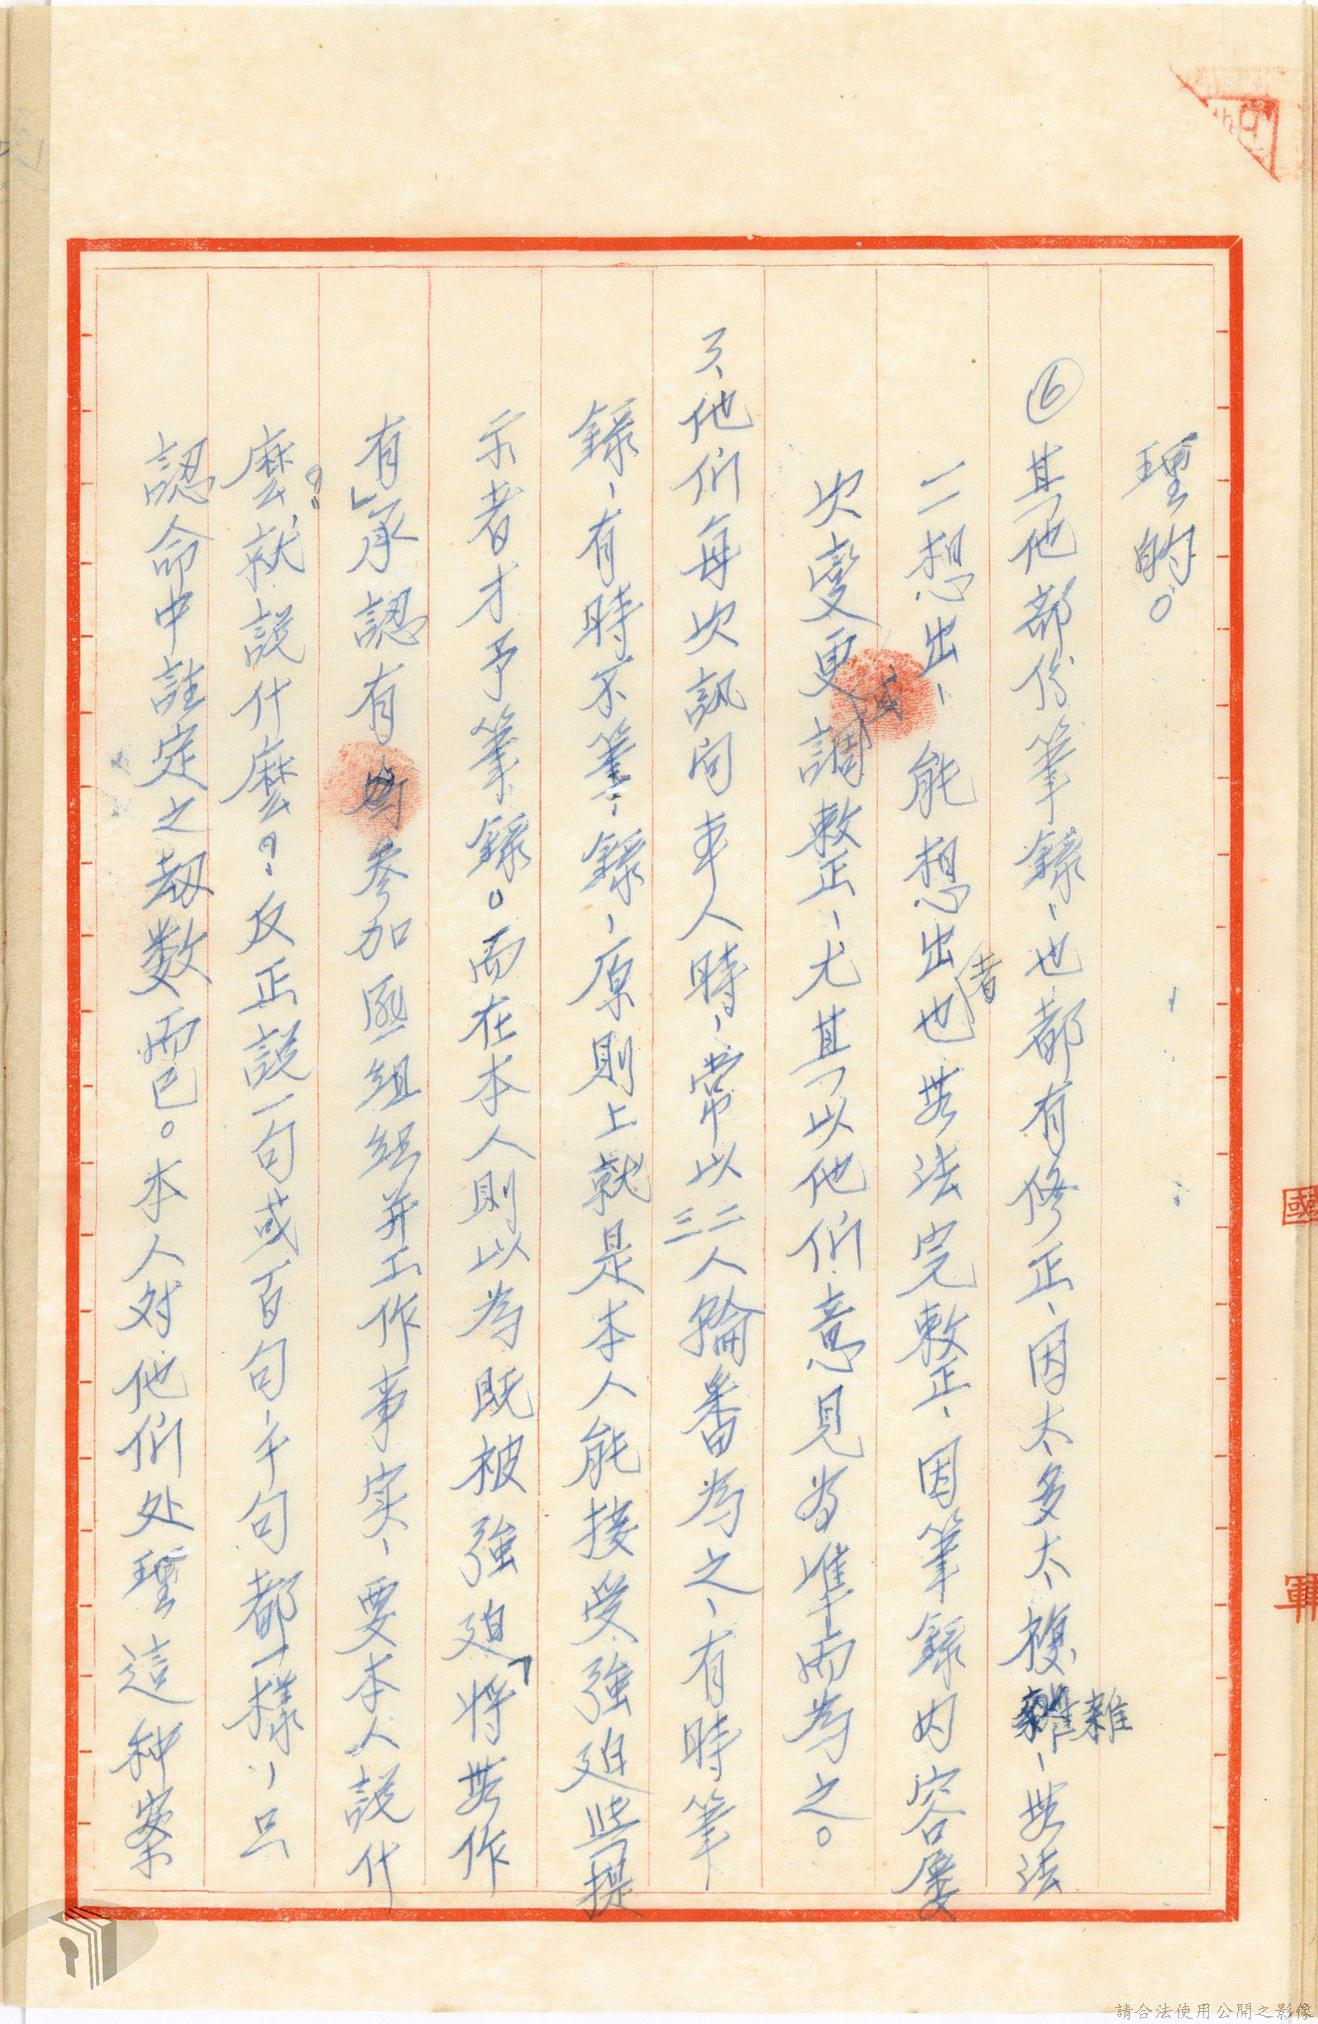 理的。
⑥其他部份筆錄、也都有修正、因太多太複雜、無法
一一想出、能想出者也無法完敕正、因筆錄内容屡
次變更或調敕正、尤其以他們意見為準而為之。
3、他們每次訊问本人時、常以二三人輪番為之、有時筆
錄、有時不筆錄、原則上就是本人能接受強迫些提
示者才予筆錄。而在本人則以為既被強迫將「無作
有」承認有參加匪組組并工作事实、要本人說什
麼？就說什麼？反正說一句或百句、千句都一樣、只
認命中註定之劫数而已。本人对他們处理這种案
國
軍
請合法使用公開之影像